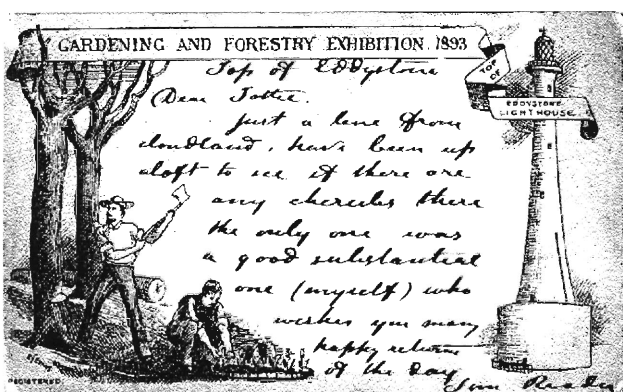 GARDENING AND FORESTRY EXHIBITION. 1893
TOP OF
EDDYSTONE
LIGHTHOUSE
Top of Eddystone
Dear Tottie.
Just a line from
cloudland, have been up
aloft to see if there are
any cherubs there
the only one was
a good substantial
one (myself) who
wishes you many
happy returns
of the day
REGISTERED